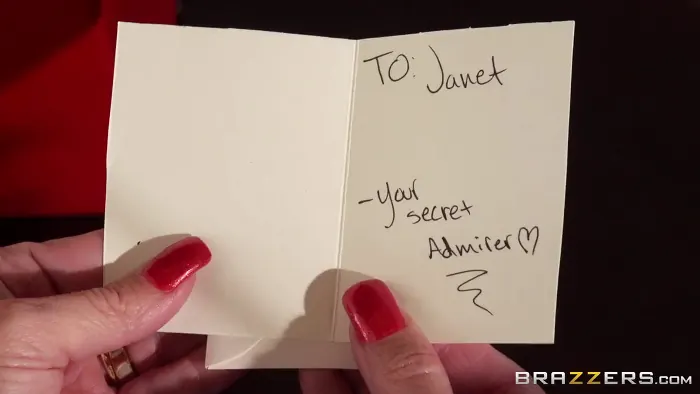 TO: Janet
-your
secret
Admirer♡
BRAZZERS.COM